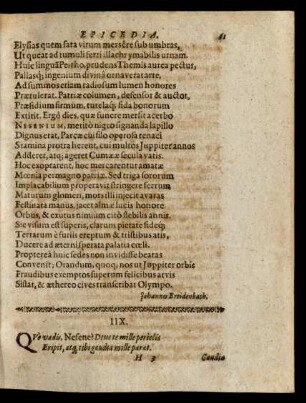 EPICEDIA. 61
Elysias quem fata virum mersêre sub umbras,
Ut queat ad tumuli ferri illachrymabilis urnam.
Huic linguã Peitho, prudens Themis aurea pectus,
Pallasq; ingenium divinâ ornaverat arte.
Ad summos etiam radiosum lumen honores
Prætulerat. Patriæ columen, defensor & auctor,
Præsidium firmum, turelaq; fida bonorum
Extitit. Ergò dies, quæ funere mersit acerbo
NESENUM, meritò nigro signanda lapillo
Digna erat. Parcæ cui filo operosa tenaci
Stamina protraherent, cui multos Juppiter annos
Adderet, atq; ageret Cumææ secula vatis.
Hoc exoptarent, hoc mercarentur amatæ
Mœnia permagno patriæ. Sed triga sororum
Implacabilium properavit stringere ferrum
Maturum glomeri, mors illi injecit avaras
Festinata manus, jacet almæ lucis honore
Orbus, & exutus nimiùm citò flebilis annis.
Sic visum est superis, clarum pietate fideq;
Terrarum è furiis ereptum & tristibus atis,
Ducere ad æterni sperata palatia cœli.
Proptereà huic sedes non invidisse beatas
Convenit; Orandum, quoq, nos ut Juppiter orbis
Fraudibus exemptos superum felicibus arvis
Sistat, & æthereo cives transcribat Olympo.
Johannes Breidenbach.
IIX.
QVo vadis, Nesene? Deus te mille periclis
Eripit, atq, tibi gaudia mille parat.
H 3 Candia